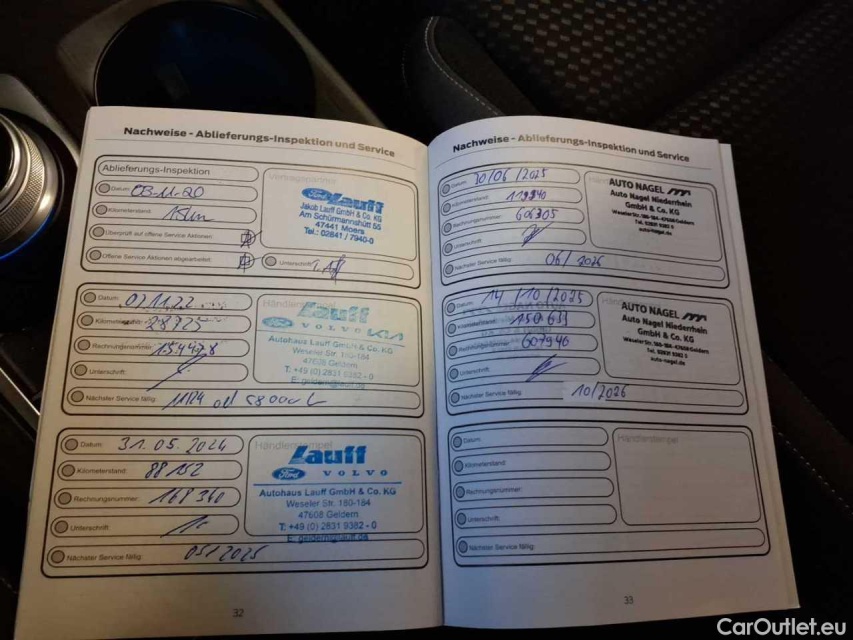 Nachweise - Ablieferungs-Inspektion und Service
Ablieferungs-Inspektion
Datum: 03-11-20
Kilometerstand: 15km
Überprüft auf offene Service Aktionen
Offene Service Aktionen abgearbeitet:
Unterschrift:
Vertragspartner
Ford Lauff
Jakob Lauff GmbH & Co. KG
Am Schürmannshütt 55
47441 Moers
Tel.: 02841 / 7940-0
Datum:
Kilometerstand: 28725
Rechnungsnummer:
Unterschrift:
Nächster Service fällig:
Lauff
Ford VOLVO KIA
Autohaus Lauff GmbH & Co. KG
Weseler Str. 180-184
47608 Geldern
T. +49 (0) 2831 9382 - 0
E: geldern@lauff.de
Datum: 31.05.2024
Kilometerstand: 88152
Rechnungsnummer: 168360
Unterschrift:
Nächster Service fällig: 05/2025
Händlerstempel
Lauff
Ford VOLVO
Autohaus Lauff GmbH & Co. KG
Weseler Str. 180-184
47608 Geldern
T. +49 (0) 2831 9382 - 0
E: geldern@lauff.de
32
Nachweise - Ablieferungs-Inspektion und Service
Datum:
Kilometerstand:
Rechnungsnummer: 606305
Unterschrift:
Nächster Service fällig: 06/2026
AUTO NAGEL
Auto Nagel Niederrhein
GmbH & Co. KG
Weseler Str. 180-184 - 47608 Geldern
Tel. 02831 9382 0
auto-nagel.de
Datum: 14/10/2025
Kilometerstand:
Rechnungsnummer: 607940
Unterschrift:
Nächster Service fällig: 10/2026
AUTO NAGEL
Auto Nagel Niederrhein
GmbH & Co. KG
Weseler Str. 180-184 - 47608 Geldern
Tel. 02831 9382 0
auto-nagel.de
Datum:
Kilometerstand:
Rechnungsnummer:
Unterschrift:
Nächster Service fällig:
Händlerstempel
33
CarOutlet.eu